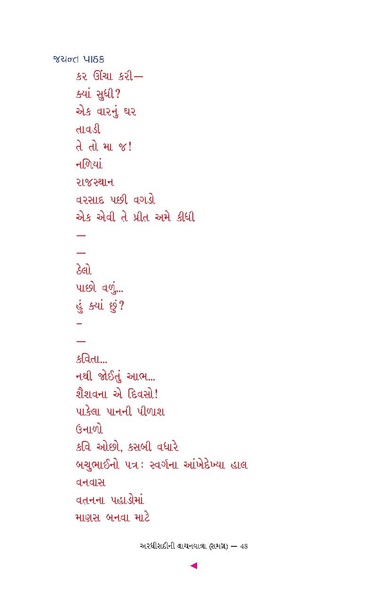 જયન્ત પાઠક
કર ઊંચા કરી—
ક્યાં સુધી?
એક વારનું ઘર
તાવડી
તે તો મા જ!
નળિયાં
રાજસ્થાન
વરસાદ પછી વગડો
એક એવી તે પ્રીત અમે કીધી
—
—
ઠેલો
પાછો વળું...
હું ક્યાં છું?
–
—
કવિતા...
નથી જોઈતું આભ...
શૈશવના એ દિવસો!
પાકેલા પાનની પીળાશ
ઉનાળો
કવિ ઓછો, કસબી વધારે
બચુભાઈનો પત્ર: સ્વર્ગના આંખેદેખ્યા હાલ
વનવાસ
વતનના પહાડોમાં
માણસ બનવા માટે
અરધીસદીની વાચનયાત્રા (સમગ્ર) — 48